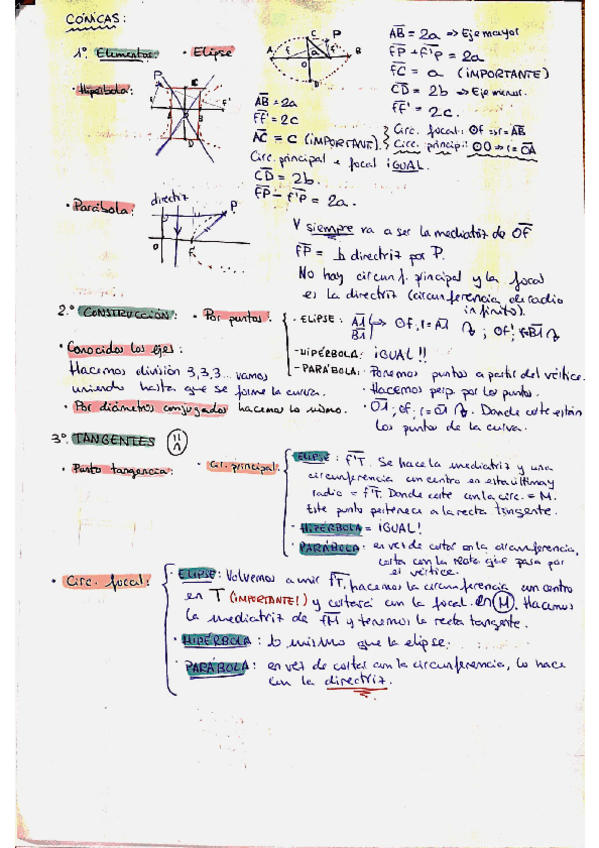 CÓNICAS:
1º. Elementos
• Elipse
C P
A F a F' B
O
D
AB = 2a => Eje mayor
FP + F'P = 2a
FC = a (IMPORTANTE)
CD = 2b => Eje menor.
FF' = 2c.
• Hipérbola:
AB = 2a
FF' = 2c
AC = c (IMPORTANTE).
Circ. focal: OF => r = AB
Circ. princip: OO => r = OA
Circ. principal e focal IGUAL.
CD = 2b.
FP - F'P = 2a.
• Parábola:
directriz
P
O
F
V siempre va a ser la mediatriz de OF
FP = b directriz por P.
No hay circunf. principal y la focal
es la directriz (circunferencia de radio
infinito).
2.º CONSTRUCCIÓN:
• Por puntos:
- ELIPSE: A1 B1 OF, r=A1 ; OF', r=B1
- HIPÉRBOLA: ¡IGUAL!!
- PARÁBOLA: Ponemos puntos a partir del vértice.
• Hacemos perp. por los puntos.
• O1, OF, r=O1. Donde corte están
los puntos de la curva.
• Conocidos los ejes:
Hacemos división 3,3,3... vamos
uniendo hasta que se forme la curva.
• Por diámetros conjugados hacemos lo mismo.
3º. TANGENTES
• Punto tangencia:
• Cir. principal:
ELIPSE: F'T. Se hace la mediatriz y una
circunferencia con centro en esta última y
radio = F'T. Donde corte con la circ. = M.
Este punto pertenece a la recta tangente.
• HIPÉRBOLA = IGUAL!
PARÁBOLA: en vez de cortar en la circunferencia,
corta con la recta que pasa por
el vértice.
• Circ. focal:
• ELIPSE: Volvemos a unir FT, hacemos la circunferencia con centro
en T (IMPORTANTE!) y cortará con la focal en M. Hacemos
la mediatriz de FM y tenemos la recta tangente.
• HIPÉRBOLA: lo mismo que la elipse.
PARÁBOLA: en vez de cortar con la circunferencia, lo hace
con la directriz.